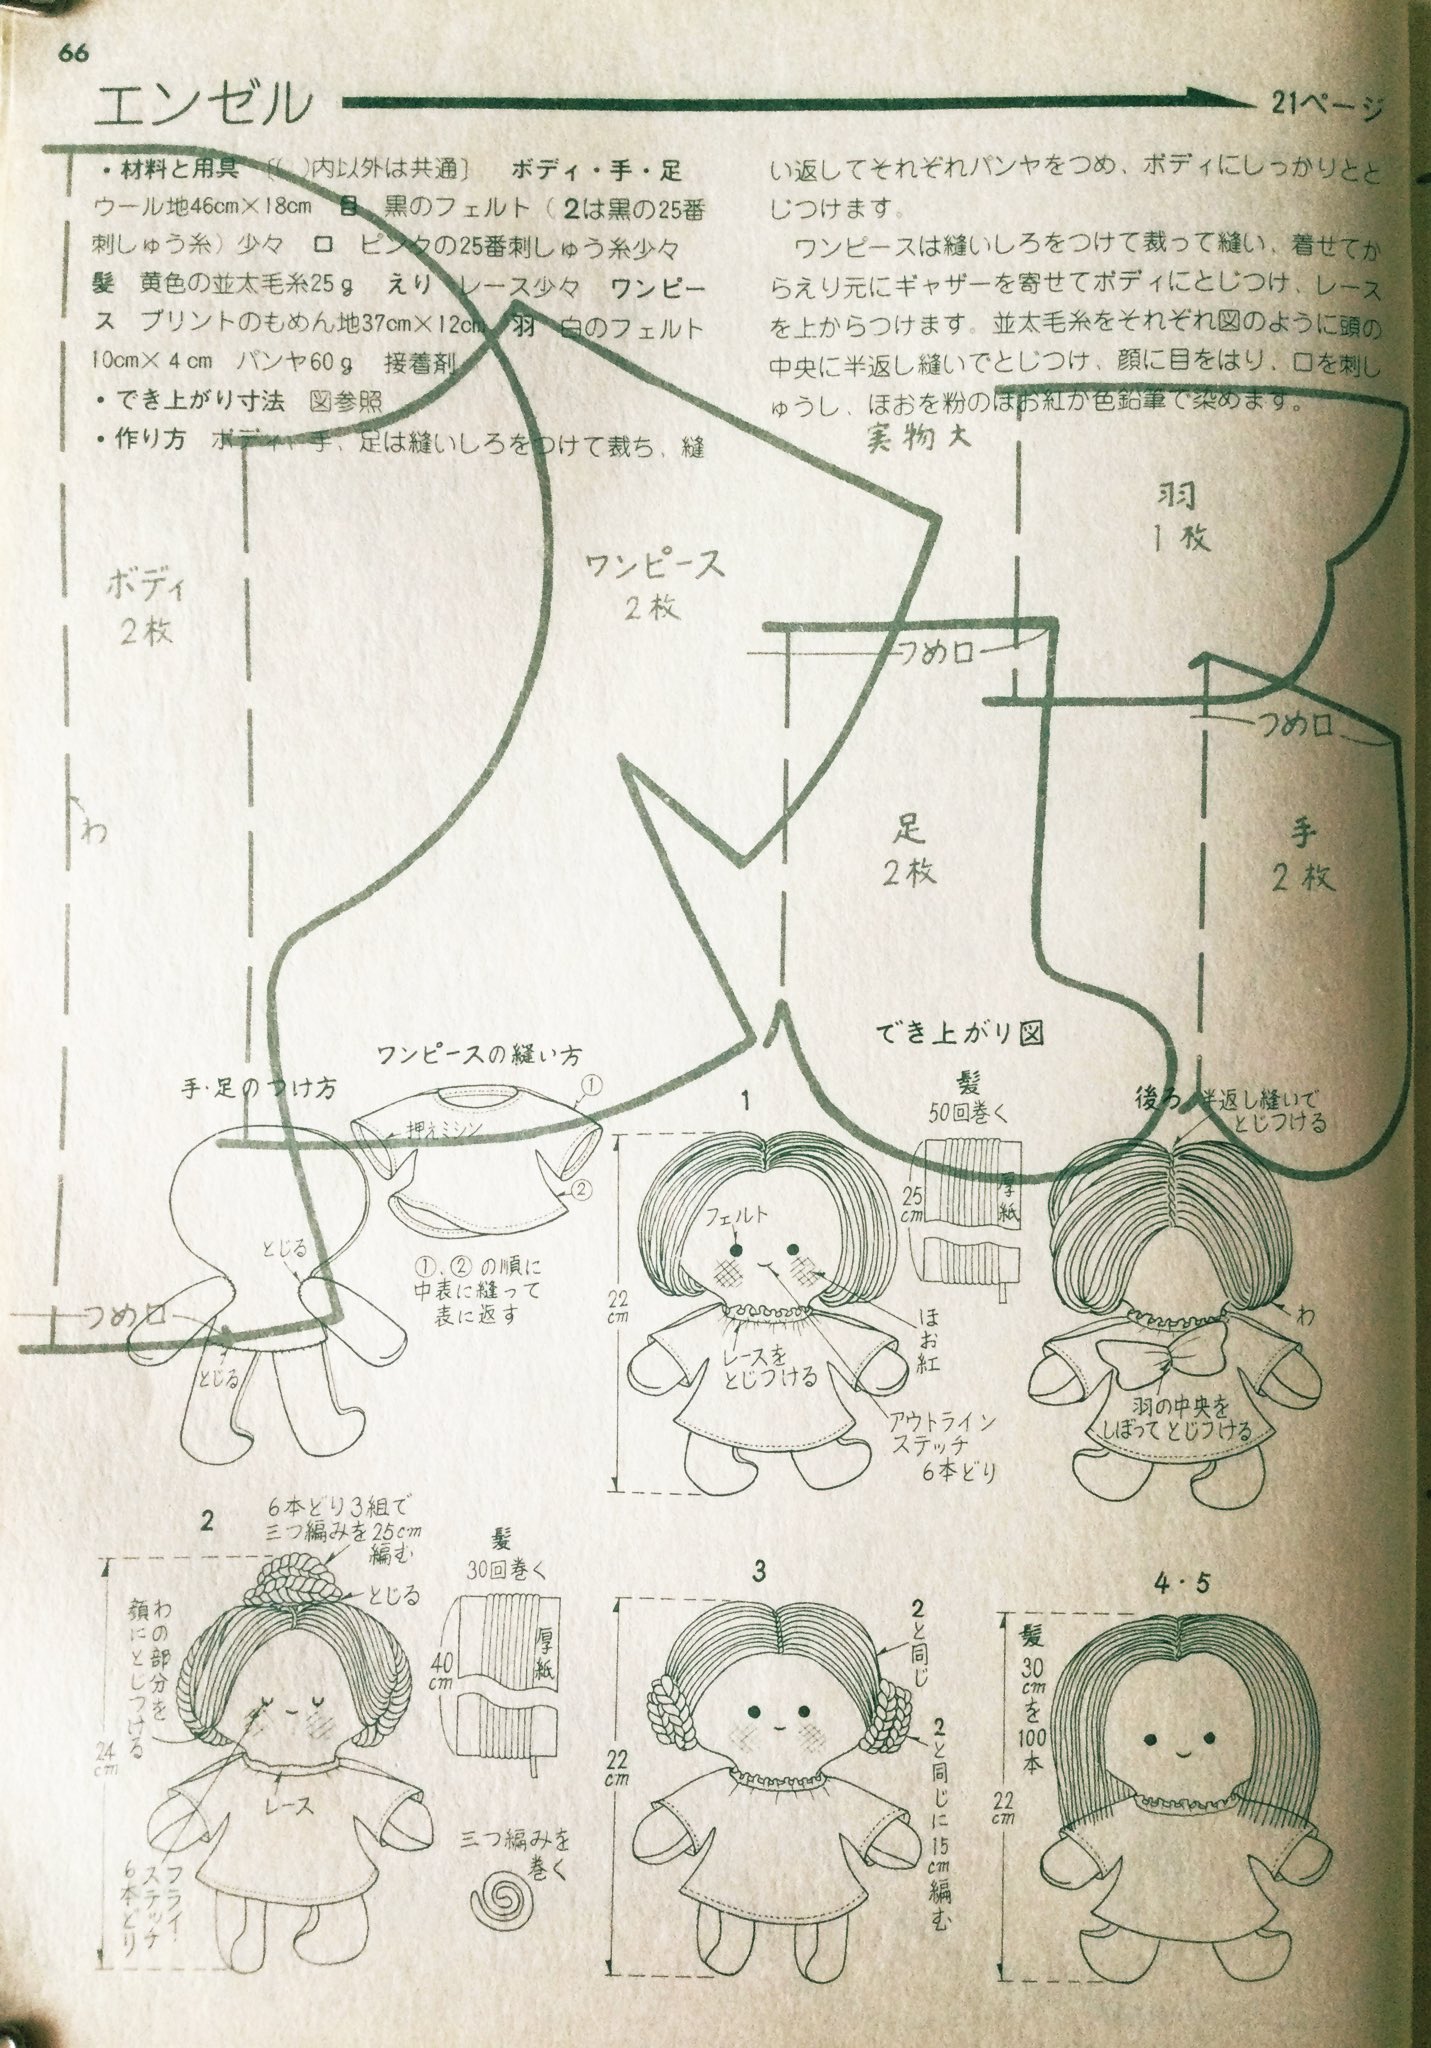 66
エンゼル
21ページ
・材料と用具 〔( )内以外は共通〕 ボディ・手・足
ウール地46cm×18cm 目 黒のフェルト(2は黒の25番
刺しゅう糸)少々 口 ピンクの25番刺しゅう糸少々
髪 黄色の並太毛糸25g えり レース少々 ワンピー
ス プリントのもめん地37cm×12cm 羽 白のフェルト
10cm×4cm パンヤ60g 接着剤
・でき上がり寸法 図参照
・作り方 ボディ、手、足は縫いしろをつけて裁ち、縫
い返してそれぞれパンヤをつめ、ボディにしっかりとと
じつけます。
ワンピースは縫いしろをつけて裁って縫い、着せてか
らえり元にギャザーを寄せてボディにとじつけ、レース
を上からつけます。並太毛糸をそれぞれ図のように頭の
中央に半返し縫いでとじつけ、顔に目をはり、口を刺し
ゅうし、ほおを粉のほお紅か色鉛筆で染めます。
実物大
羽
1枚
ボディ
2枚
ワンピース
2枚
つめ口
つめ口
わ
足
2枚
手
2枚
でき上がり図
ワンピースの縫い方
手・足のつけ方
①
押えミシン
②
①、②の順に
中表に縫って
表に返す
とじる
つめ口
とじる
1
髪
50回巻く
25cm
厚紙
フェルト
22cm
ほお紅
レースを
とじつける
アウトライン
ステッチ
6本どり
後ろ
半返し縫いで
とじつける
わ
羽の中央を
しぼってとじつける
2
6本どり3組で
三つ編みを25cm
編む
とじる
わの部分を
顔にとじつける
24cm
レース
フライ・
ステッチ
6本どり
髪
30回巻く
40cm
厚紙
三つ編みを
巻く
3
2と同じ
22cm
2と同じに15cm編む
4・5
髪30cmを100本
22cm